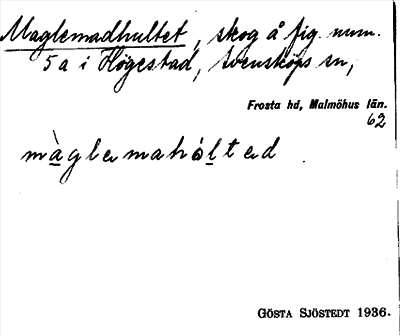 Maglemadhultet, skog å fig. num.
5a i Högestad, Svensköps sn,
Frosta hd, Malmöhus län.
62
màglemahólted
GÖSTA SJÖSTEDT 1936.